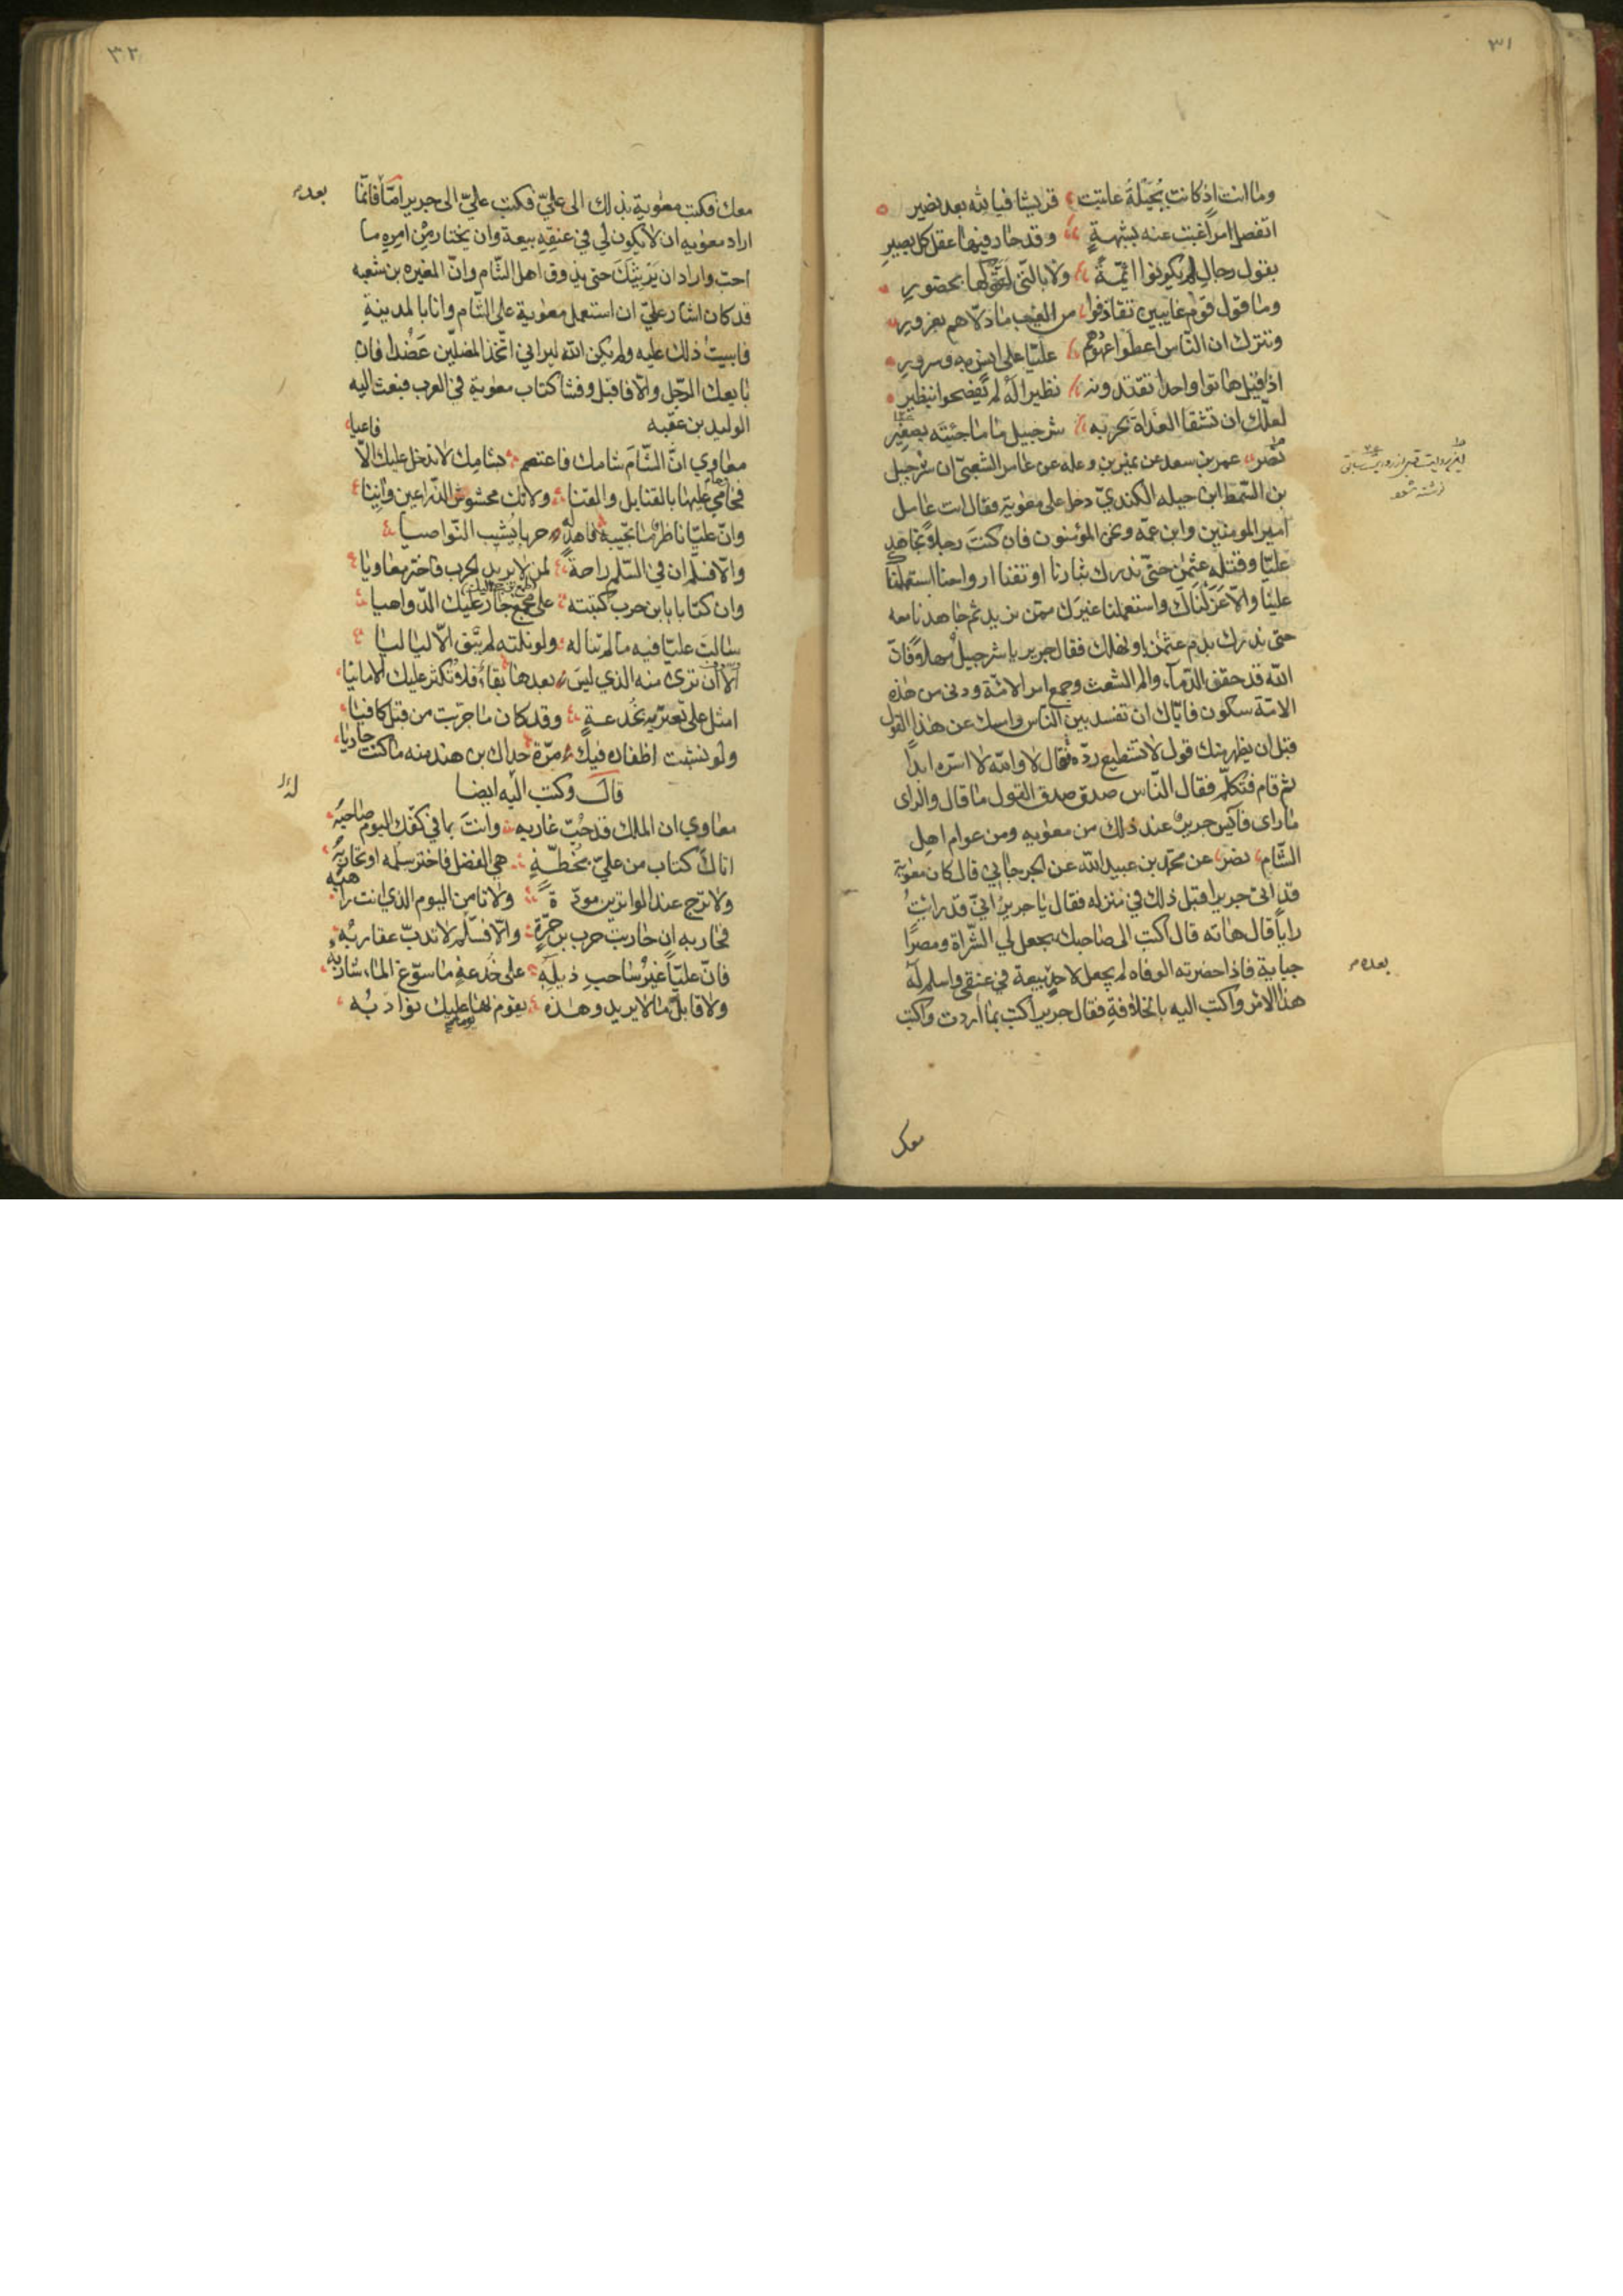 ٣١
وما انت اذ كانت بجيلة عاتبت قريشا فيا لله بعد نصير
اتفصل امرا غبت عنه بشبهة وقد حار فيها عقل كل بصير
بقول رجال لم يكونوا ائمة ولا بالتي لقوكها بحضور
وما قول قوم غايبين تقاذفوا من الغيب ما دلاهم بغرور
وتترك ان الناس اعطوا عهودهم عليا على انس به وسرور
اذا قيل هاتوا واحدا تقتدونه نظيرا له لم يفصحوا بنظير
لعلك ان تشقا الغداة بحربه شرحبيل ما ما جئته بصغير
نصر عمر بن سعد عن نمير بن وعله عن عامر الشعبي ان شرحبيل
بن السمط ابن جبله الكندي دخل على معوية فقال انت عامل
امير المومنين وابن عمه ونحن المؤمنون فان كنت رجلا تجاهد
عليا وقتله عثمن حتى ندرك بثارنا او تفنا ارواحنا استعملناك
علينا والا عزلناك واستعملنا غيرك ممن نريد ثم جاهدنا معه
حتى ندرك بدم عثمن او نهلك فقال جرير يا شرحبيل مهلا فان
الله قد حقن الدماء ولم الشعث وجمع امر الامة ودنى من هذه
الامة سكون فاياك ان تفسد بين الناس وامسك عن هذا القول
قبل ان يظهر منك قول لا تستطيع رده فقال لا والله لا اسره ابدا
ثم قام فتكلم فقال الناس صدق صدق القول ما قال والراى
ما راى فآيس جرير عند ذلك من معويه ومن عوام اهل
الشام نصر عن محمد بن عبيد الله عن الجرجاني قال كان معوية
قد اتى جريرا قبل ذلك في منزله فقال يا جرير اني قد رايت
رايا قال هاته قال اكتب الى صاحبك يجعل لي الشراة ومصرا
جباية فاذا حضرته الوفاه لم يجعل لاحد بيعة في عنقي واسلم له
هذا الامر واكتب اليه بالخلافة فقال جرير اكتب بما اردت واكتب
بعده
معك
٣٢
معك فكتب معوية بذلك الى علي فكتب علي الى جرير اما فانما
بعد
اراد معويه ان لا يكون لي في عنقه بيعة وان يختار من امره ما
احب واراد ان يريثك حتى يذوق اهل الشام وان المغيره بن شعبه
قد كان اشار علي ان استعمل معوية على الشام وانا بالمدينة
فابيت ذلك عليه ولم يكن الله ليراني اتخذ المضلين عضدا فان
بايعك الرجل والا فاقبل وفشا كتاب معوية في العرب فبعث اليه
الوليد بن عقبه
معاوي ان الشام شامك فاعتصم بشامك لا تدخل عليك الا فاعيا
فحامي عليها بالقنابل والقنا ولا تك محشوش الذراعين وانيا
وان عليا ناظر ما تجيبه فاهد له حربا يشيب النواصيا
والا فسلم ان في السلم راحة لمن لا يريد الحرب فاختر معاويا
وان كتابا يا بن حرب كتبته على طمع جار عليك الدواهيا
سالت عليا فيه ما لم تناله ولو نلته لم يبق الا لياليا
الا ان ترى منه الذي ليس بعدها بقاء فلا تكثر عليك الامانيا
امثل علي تعتريه بخدعة وقد كان ما جربت من قبل كافيا
ولو نشبت اظفاره فيك مرة حداك بن هند منه ما كنت حاديا
قال وكتب اليه ايضا
معاوي ان الملك قد جب غاربه وانت بما في كفك اليوم صاحبه
اتاك كتاب من علي بخطة هي الفضل فاختر سلمه او تحاربه
ولا ترج عند الواترين مودة ولا تامن اليوم الذي انت راهبه
فحاربه ان حاربت حرب بن حرة والا فسلم لا تدب عقاربه
فان عليا غير ساحب ذيله على خدعة ما سوغ الماء شاربه
ولا قابل ما لا يريد وهذه يقوم بها يوما عليك نوادبه